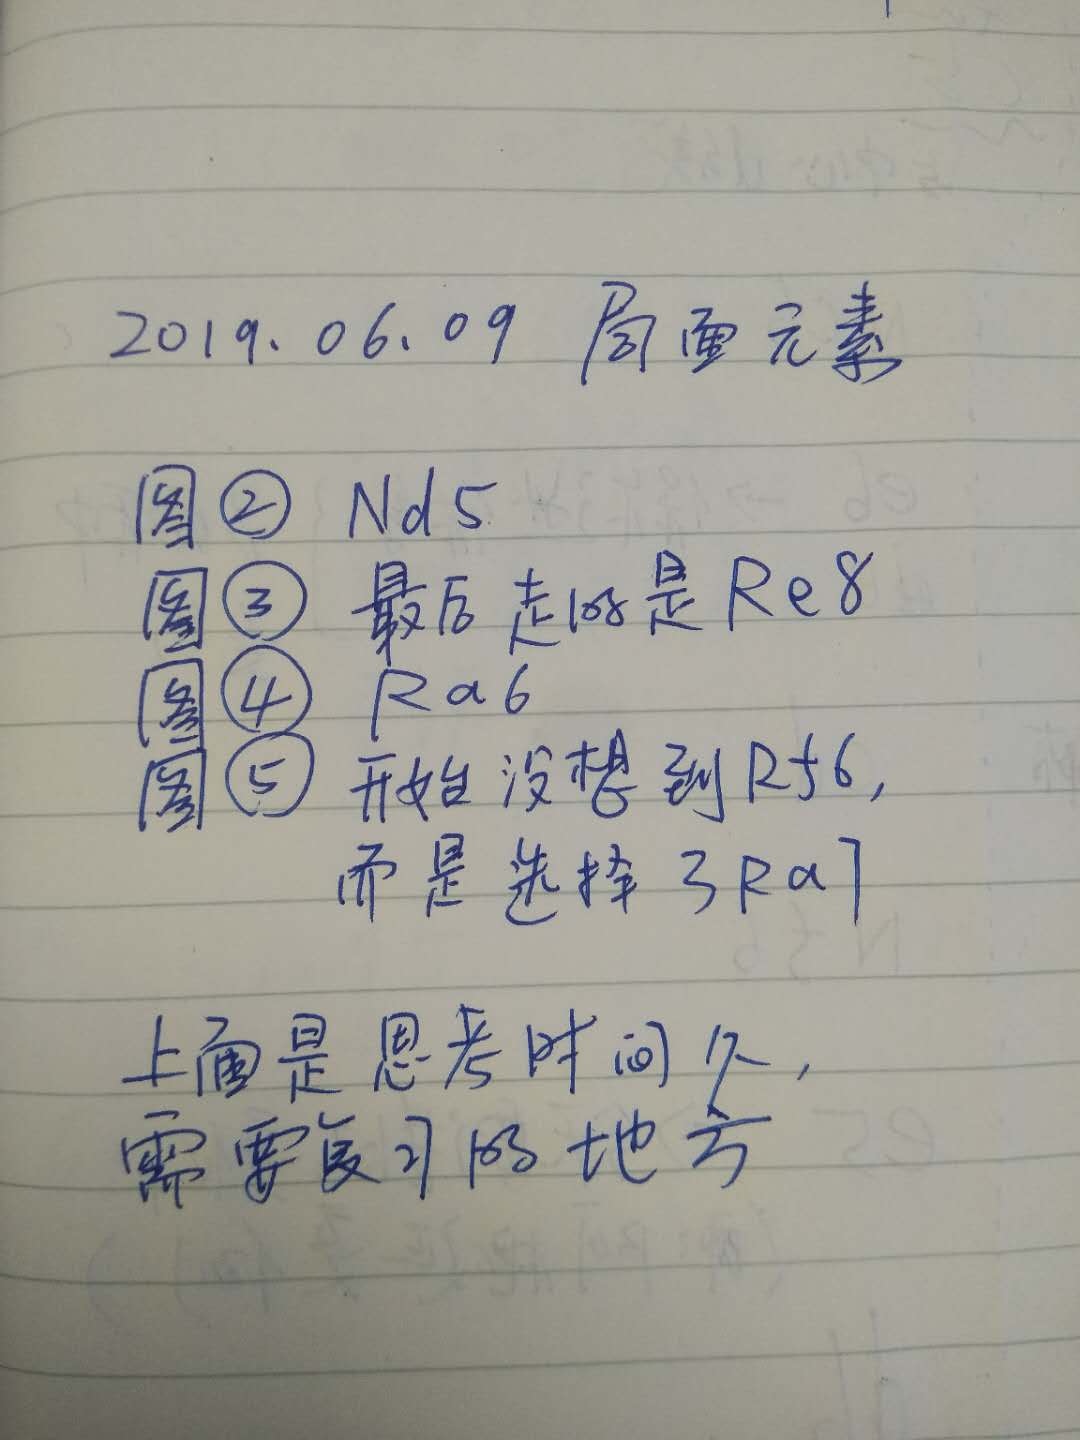 2019.06.09 局面元素
图② Nd5
图③ 最后走的是Re8
图④ Ra6
图⑤ 开始没想到Rf6,
而是选择了Ra7
上面是思考时间久,
需要复习的地方